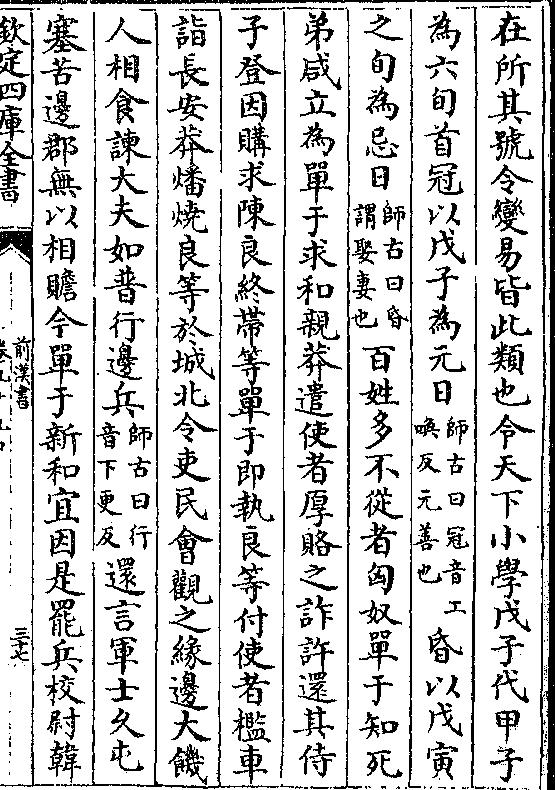 在所其號令變易皆此類也令天下小學戊子代甲子
為六旬首冠以戊子為元日師古曰冠音工喚反元善也昏以戊寅
之旬為忌日師古曰昏謂娶妻也百姓多不從者匈奴單于知死
弟咸立為單于求和親莽遣使者厚賂之詐許還其侍
子登因購求陳良終帶等單于即執良等付使者檻車
詣長安莽燔燒良等於城北令吏民會觀之緣邊大饑
人相食諫大夫如普行邊兵師古曰行音下更反還言軍士久屯
塞苦邊郡無以相贍今單于新和宜因是罷兵校尉韓
欽定四庫全書
前漢書
三十七